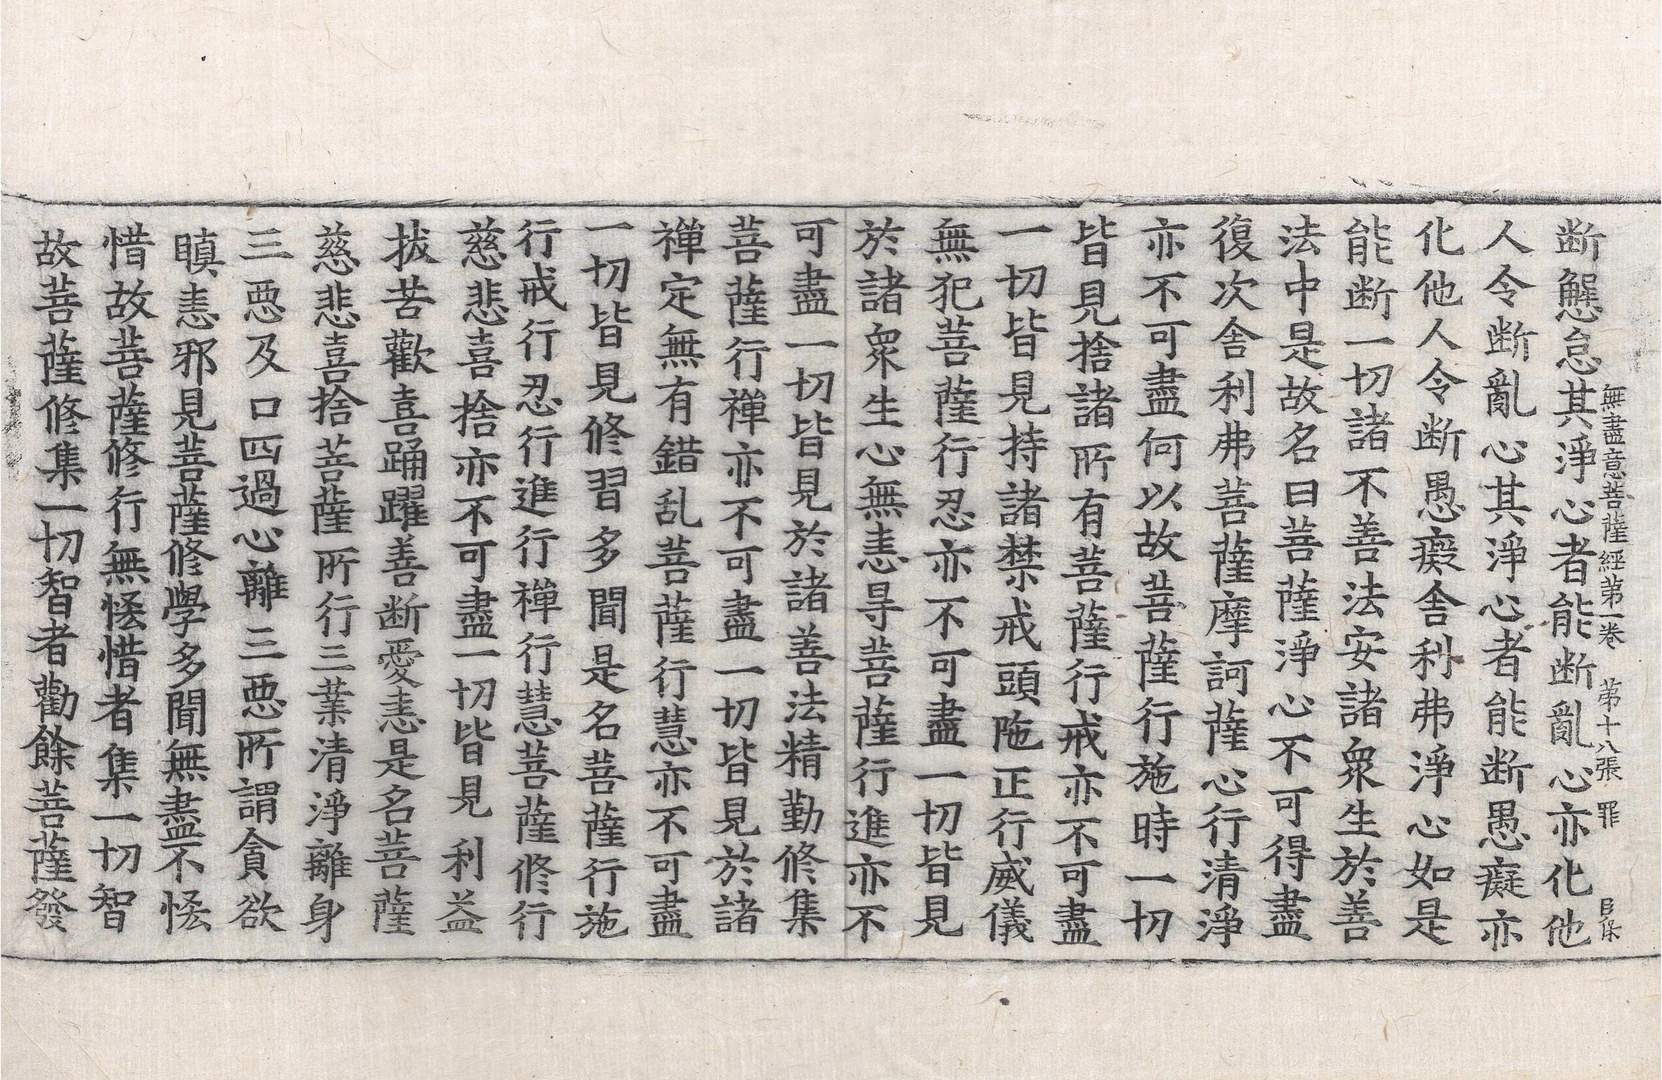 無盡意菩薩經第一卷 第十八張 罪 吕保
断懈怠其淨心者能断亂心亦化他
人令断亂心其淨心者能断愚癡亦
化他人令断愚癡舍利弗淨心如是
能断一切諸不善法安諸衆生於善
法中是故名曰菩薩淨心不可得盡
復次舍利弗菩薩摩訶薩心行清淨
亦不可盡何以故菩薩行施時一切
皆見捨諸所有菩薩行戒亦不可盡
一切皆見持諸禁戒頭陁正行威儀
無犯菩薩行忍亦不可盡一切皆見
於諸衆生心無恚㝵菩薩行進亦不
可盡一切皆見於諸善法精勤修集
菩薩行禪亦不可盡一切皆見於諸
禪定無有錯乱菩薩行慧亦不可盡
一切皆見修習多聞是名菩薩行施
行戒行忍行進行禪行慧菩薩修行
慈悲喜捨亦不可盡一切皆見利益
拔苦歡喜踊躍善断愛恚是名菩薩
慈悲喜捨菩薩所行三業清淨離身
三惡及口四過心離三惡所謂貪欲
瞋恚邪見菩薩修學多聞無盡不悋
惜故菩薩修行無悋惜者集一切智
故菩薩修集一切智者勸餘菩薩發